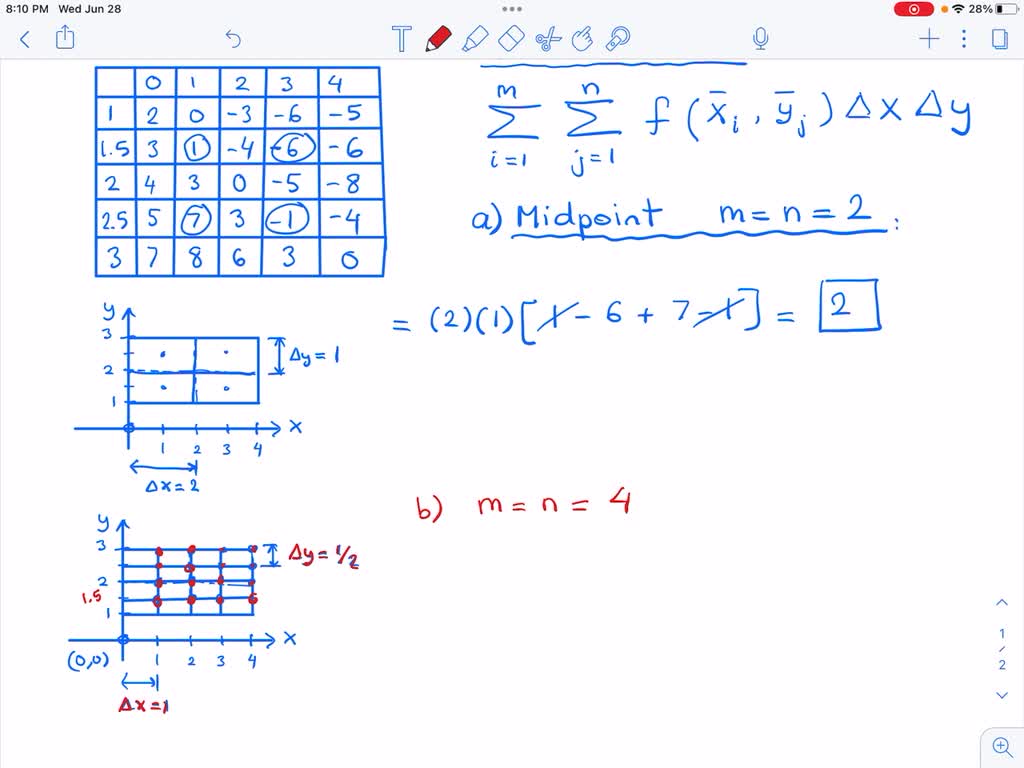 8:10 PM Wed Jun 28
28%
0 1 2 3 4
1 2 0 -3 -6 -5
1.5 3 1 -4 -6 -6
2 4 3 0 -5 -8
2.5 5 7 3 -1 -4
3 7 8 6 3 0
m n
∑ ∑ f(x̄ᵢ, ȳⱼ) Δx Δy
i=1 j=1
a) Midpoint m = n = 2 :
= (2)(1)[1 - 6 + 7 - 1] = 2
y
3
2
1
Δy = 1
x
1 2 3 4
Δx = 2
b) m = n = 4
y
3
2
1.5
1
Δy = 1/2
x
(0,0) 1 2 3 4
Δx = 1
1
/
2